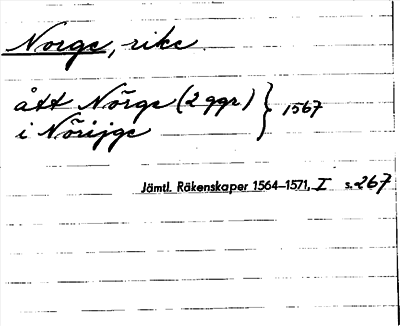 Norge, rike
ått Nörge (2 ggr) } 1567
i Nörijge
Jämtl. Räkenskaper 1564–1571, I s. 267